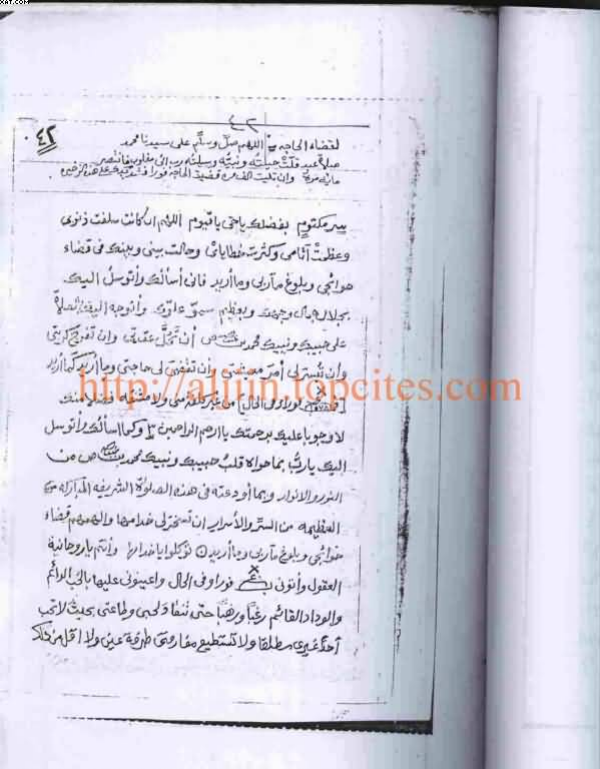 XAT.COM
٤٢
٤٢
لقضاء الحاجه اللهم صلّ وسلّم على سيدنا محمد
صلاة عبد قلّت حيلته ونبيّه وسيلته رب انى مغلوب فانتصر
مرة وان تليت قضيت الحاجة فورا على هذه الذخيره
بسر مكتوم بفضلك ياحى ياقيوم اللهم ان كانت سلفت ذنوبى
وعظمت آثامى وكثرت خطاياى وحالت بينى وبينك فى قضاء
حوائجى وبلوغ مآربى وما أريد فانى أسألك وأتوسل اليك
بجلال جمال وجهك وبعظيم سموّ علوّك وأتوجه اليك بالصلاة
على حبيبك ونبيك محمد ص أن تحلّ عقدتى وان تفرّج كربتى
وان تيسر لى أمر معيشتى وان تقضى لى حاجتى وما أريد كما أريد
فورا وفى الحال من غير كلفة منى ولا مشقه فضلا منك
لا وجوبا عليك برحمتك يا ارحم الراحمين وكما أسألك وأتوسل
اليك يارب بما حواه قلب حبيبك ونبيك محمد ص من
النور والانوار وبما أودعته فى هذه الصلوة الشريفه المباركه
العظيمه من السرّ والأسرار ان تسخر لى خدامها والهمهم قضاء
حوائجى وبلوغ مآربى وما أريد توكلوا ياخدامها وأنتم ياروحانية
العقول وأتونى فورا وفى الحال واعينونى عليها بالحب الدائم
والوداد القائم رغبا ورهبا حتى تنقاد لحبى وطاعتى بحيث لا تحب
أحدا غيرى مطلقا ولا تستطيع مفارقتى طرفة عين ولا اقل من ذلك
http://aljiin.topcites.com